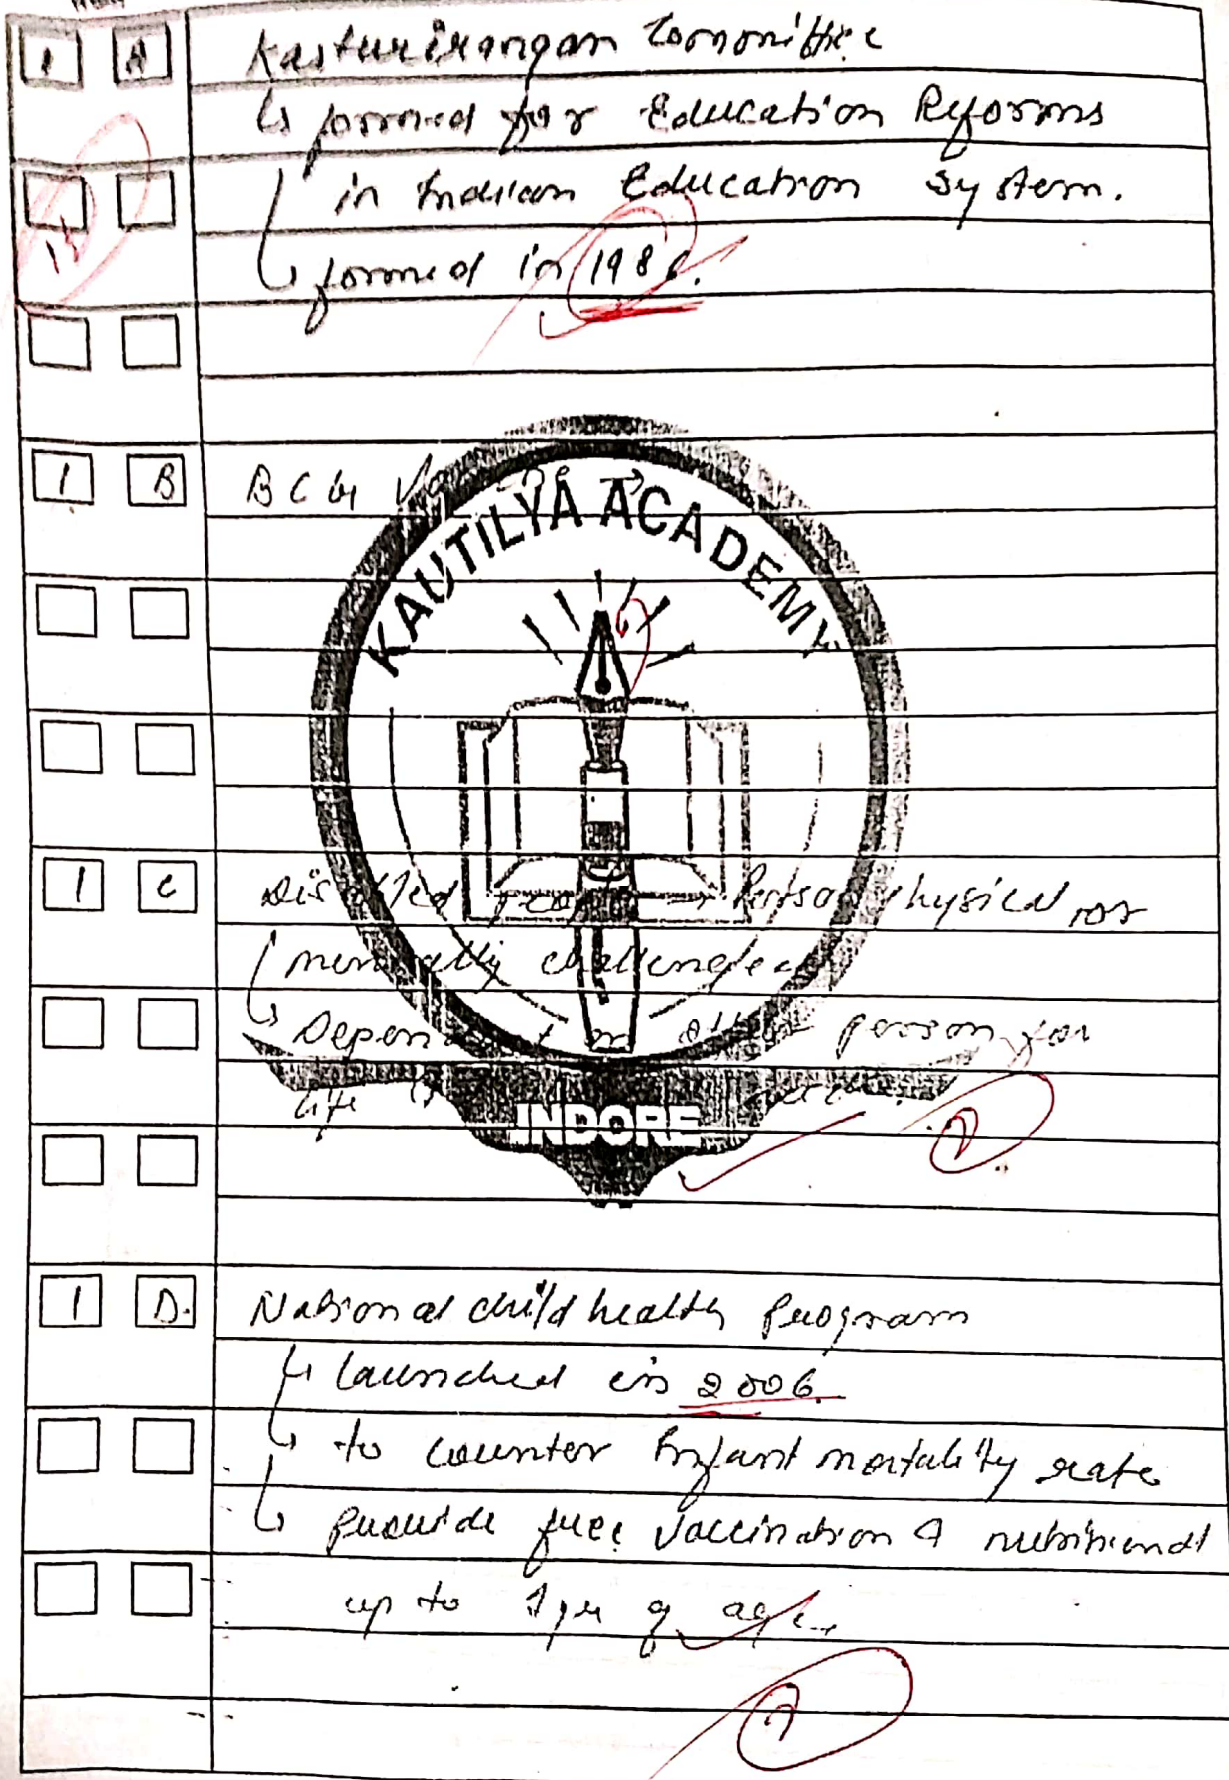 1 A Kasturirangan Committee
↳ formed for Education Reforms
in Indian Education System.
↳ formed in 1986.
1 B BCG
KAUTILYA ACADEMY
1 C Disabled people → Person Physical or
mentally challenged
↳ Dependent on other person for
life
INDORE
2
1 D. National child health Program
↳ launched in 2006.
↳ to counter Infant mortality rate
↳ Provide free Vaccination & nutritional
up to 1 yr of age.
2